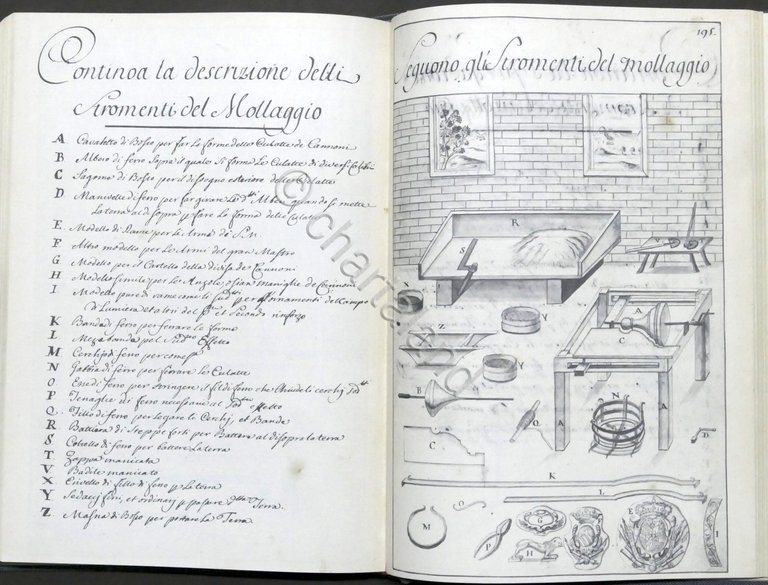 Continoa la descrizione delli
Stromenti del Mollaggio
A Cavaletto di Bosco per far le forme delle Culatte de Cannoni
B Albero di ferro sopra il quale si forma le Culatte di diversi Calibri
C Sagome di Bosco per il disegno esteriore delle Culatte
D Manivelle di ferro per far girare li d.tti Alberi quando si mette
La terra al di sopra p. fare la forma delle Culatte
E. Modello di per le Arma di S.M.
F Altro modello per le Armi del gran Mastro
G Modello per il Cartello della divisa de Cannoni
H Modello simile per le Anzole, o sian maniglie de Cannoni
I Modello pure di rame come li per ornamenti della
di Lumiera ed altri del et secondo rinforzo
K Banda di ferro per ferrare le forme
L Mezza banda pel Effetto
M Cerchij di ferro per come
N Gabbia di ferro per ferrare le Culatte
O Esse di ferro per stringere il fil di ferro che chiude li cerchij
P Tenaglie di ferro necessarie al effetto
Q. Fillo di ferro per legare li Cerchij, et Banda
R Battiera di Steppe forti per Battere al di sopra la terra
S Coltello di ferro per battere la terra
T Zappa manicata
V Badile manicato
X Crivello di fillo di ferro p. la terra
Y Sedacij fini, et ordinarij p. passare d.tta Terra.
Z Masna di Bosco per portare la Terra.
195.
Seguono gli Stromenti del mollaggio
R
S
T
V
X
Y
Z
Y
A
C
B
A
N
A
Q
D
C
K
L
M
O
P
G
H
F
E
I
© charta.info